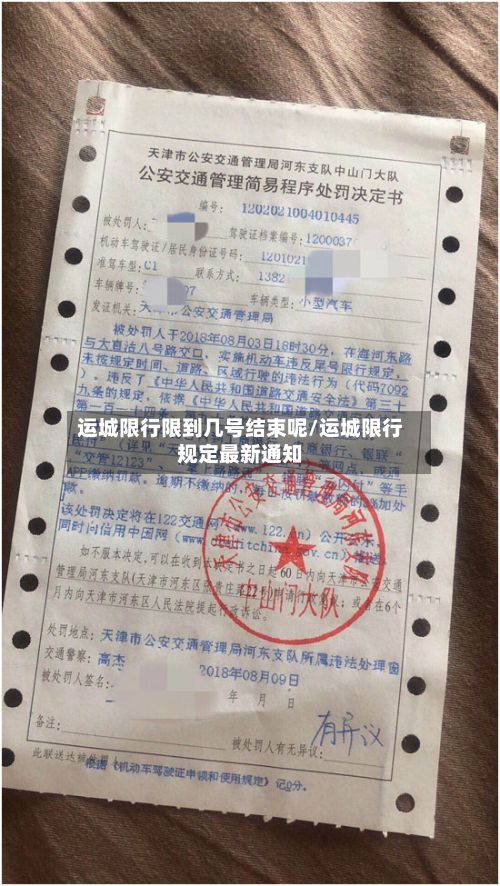 天津市公安交通管理局河东支队中山门大队
公安交通管理简易程序处罚决定书
编号: 1202021004010445
被处罚人: 驾驶证档案编号: 1200037
机动车驾驶证/居民身份证号码: 1201021
准驾车型: C1 联系方式: 1382
车辆牌号: 07 车辆类型: 小型汽车
发证机关: 天津市公安交通管理局
被处罚人于2018年08月03日18时30分, 在海河东路
与大直沽八号路交口, 实施机动车违反尾号限行规定,
未按规定时间、道路、区域行驶的违法行为(代码7092
), 违反了《中华人民共和国道路交通安全法》第三十
九条的规定, 依据《中华人民共和国道路交通安全法》
第一百一十四条
运城限行限到几号结束呢/运城限行
规定最新通知
缴纳罚款。逾期不缴纳的, 加处
该处罚决定将在122交通网(www.122.cn)公开
同时向信用中国网(www. gov.cn)推送
如不服本决定, 可以在收到本决定书之日起60日内向天津市 交通
管理局河东支队(天津市河东区 22号)申请行政复议; 或者在6个
月内向天津市河东区人民法院提起行政诉讼。
天津市公安交通管理局河东支队
中山门大队
处罚地点: 天津市公安交通管理局河东支队所属违法处理窗
交通警察: 高杰 2018年08月09日
被处罚人签名: 年 月 日
备注: 被处罚人有无异议: 有异议
此联送达被处罚人
根据《机动车驾驶证申领和使用规定》记0分。